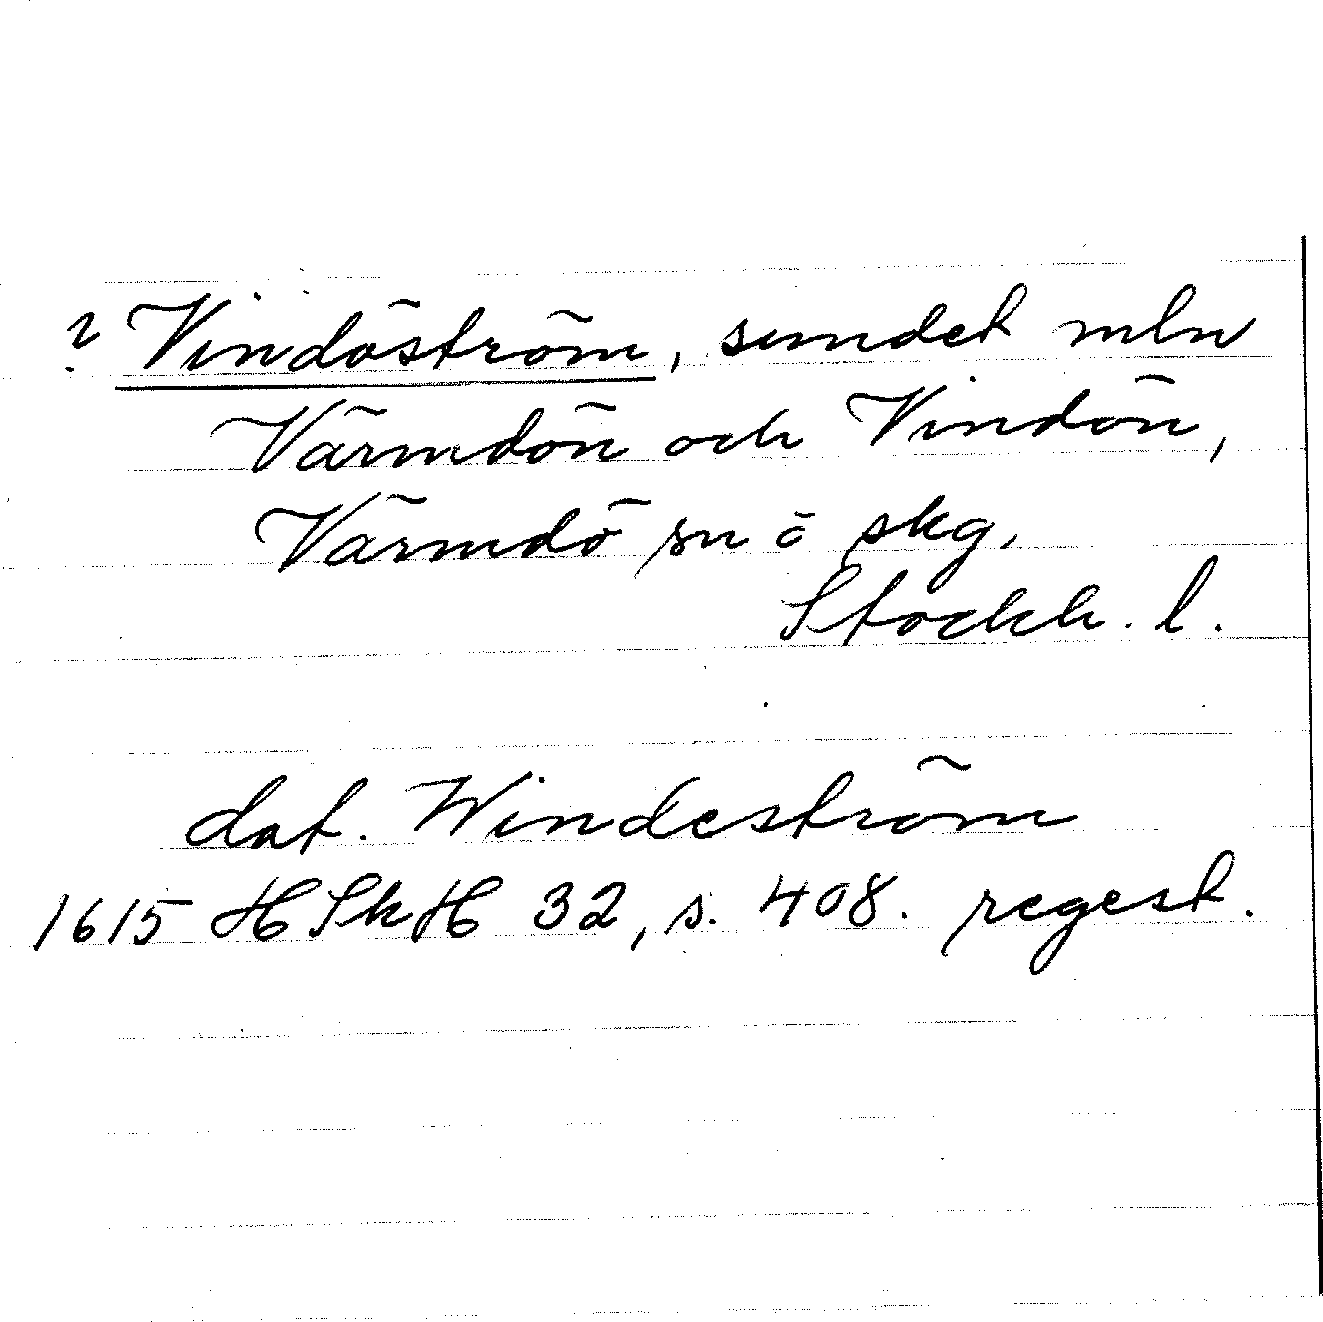 ? Vindöström, sundet mln
Värmdön och Vindön,
Värmdö sn o skg,
Stockh. l.
dat. Windeström
1615 HSkH 32, s. 408. regest.